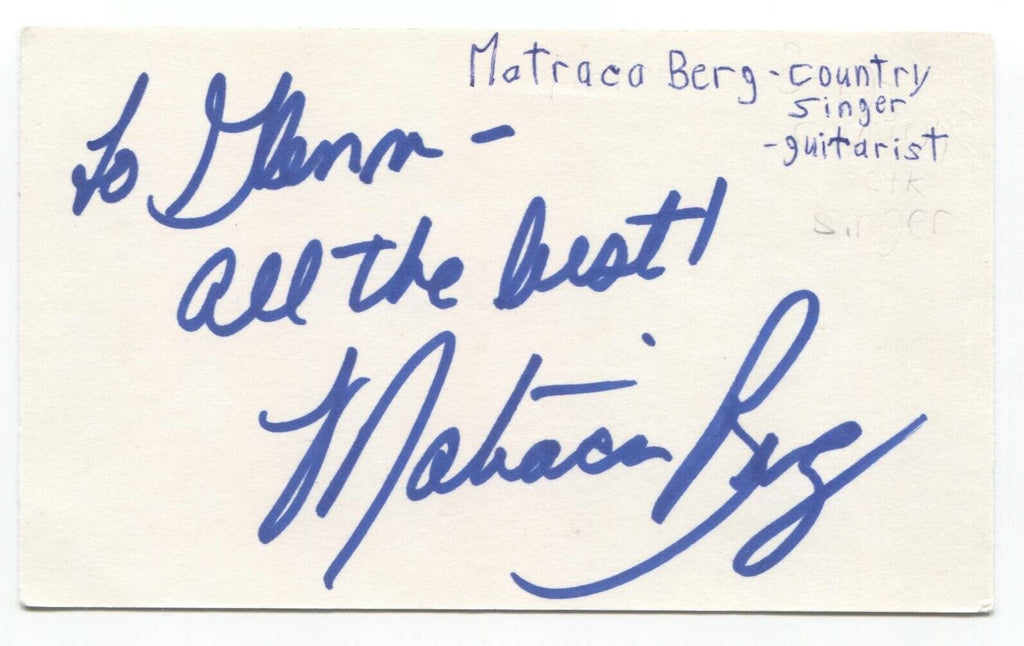 Matraca Berg - country
singer
- guitarist
To Glenn -
all the best!
Matraca Berg
singer